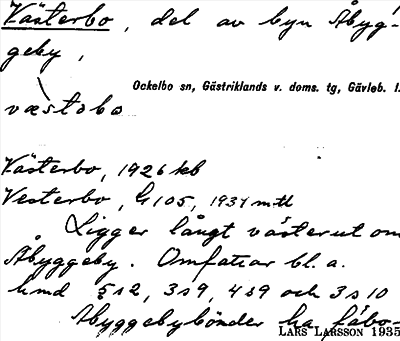 Västerbo, del av byn Åbyg-
geby,
Ockelbo sn, Gästriklands v. doms. tg, Gävleb. l.
Västerbo, 1926 kb
Vesterbo, G 105, 1934 mtl
Ligger långt västerut om
Åbyggeby. Omfattar bl. a.
hmd §12, 319, 419 och 3 s 10
Åbyggebybönder ha fäbo-
LARS LARSSON 1935